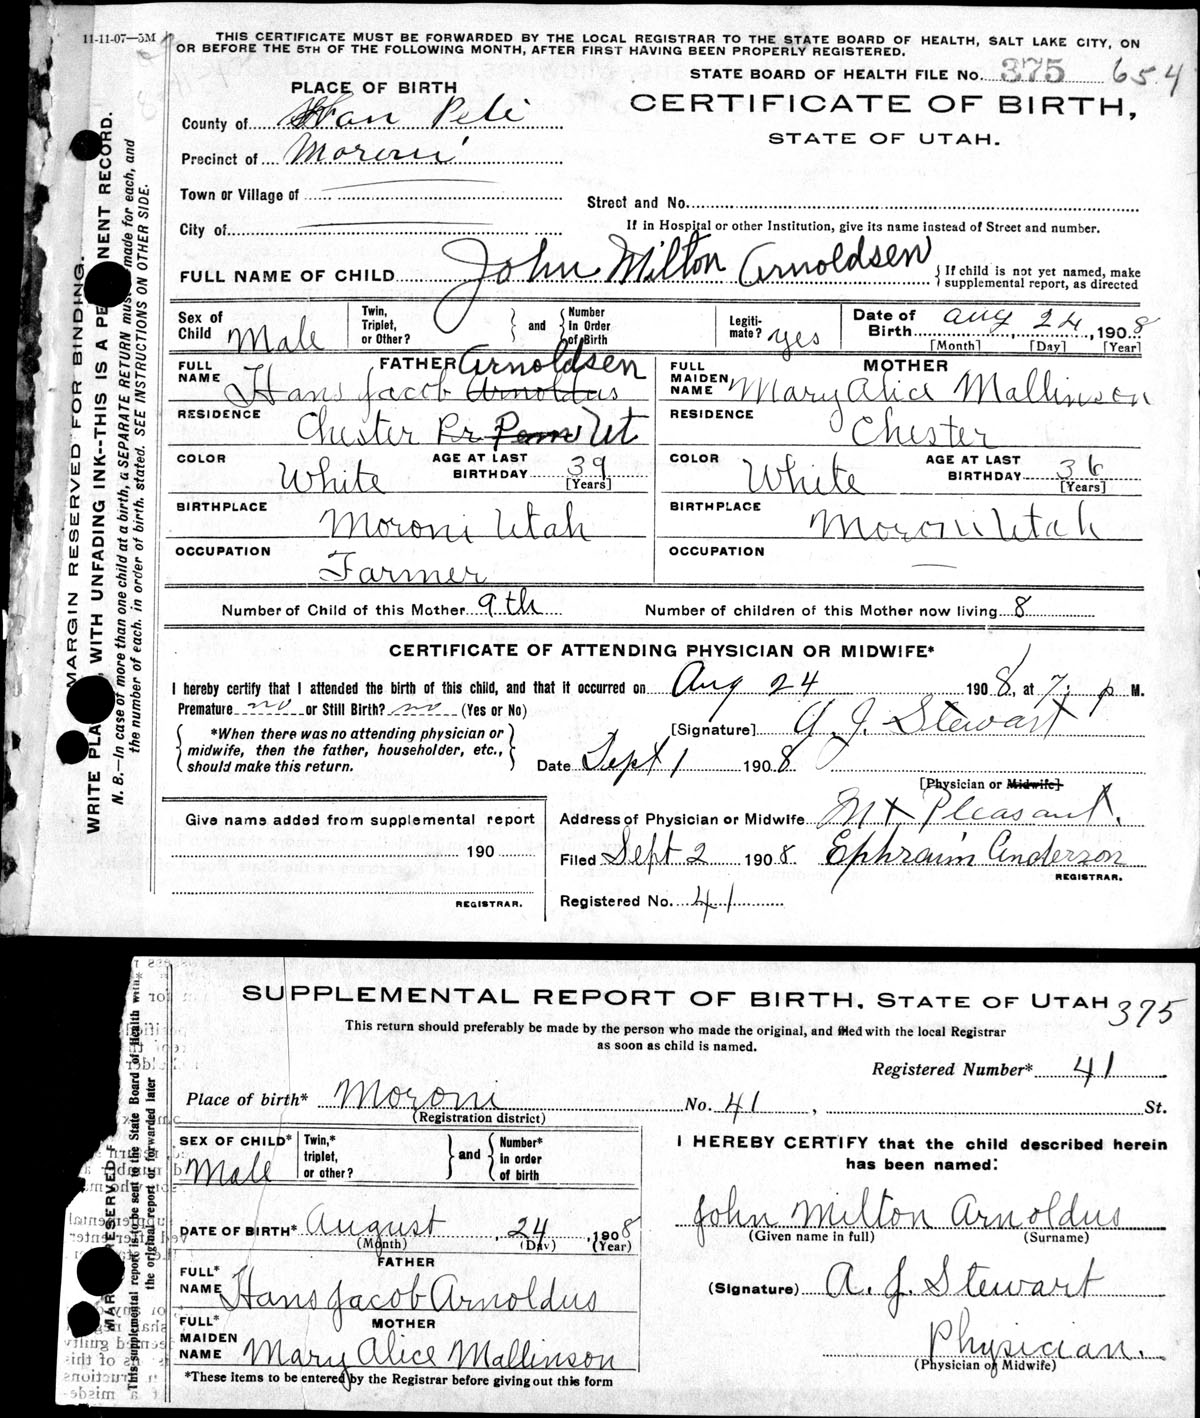 11-11-07—5M
THIS CERTIFICATE MUST BE FORWARDED BY THE LOCAL REGISTRAR TO THE STATE BOARD OF HEALTH, SALT LAKE CITY, ON
OR BEFORE THE 5TH OF THE FOLLOWING MONTH, AFTER FIRST HAVING BEEN PROPERLY REGISTERED.
STATE BOARD OF HEALTH FILE No. 375 654
PLACE OF BIRTH
CERTIFICATE OF BIRTH,
STATE OF UTAH.
County of San Pete
Precinct of Moroni
Town or Village of
Street and No.
City of
If in Hospital or other Institution, give its name instead of Street and number.
FULL NAME OF CHILD John Milton Arnoldsen
{ If child is not yet named, make
supplemental report, as directed
Sex of
Child Male
Twin,
Triplet,
or Other? } and { Number
In Order
of Birth
Legiti-
mate? yes
Date of
Birth Aug 24, 1908
[Month] [Day] [Year]
FATHER
FULL
NAME Hans Jacob Arnoldus Arnoldsen
MOTHER
FULL
MAIDEN
NAME Mary Alice Mallinson
RESIDENCE Chester Pr Ut
RESIDENCE Chester
COLOR White
AGE AT LAST
BIRTHDAY 39
[Years]
COLOR White
AGE AT LAST
BIRTHDAY 36
[Years]
BIRTHPLACE Moroni Utah
BIRTHPLACE Moroni Utah
OCCUPATION Farmer
OCCUPATION —
Number of Child of this Mother 9th
Number of children of this Mother now living 8
CERTIFICATE OF ATTENDING PHYSICIAN OR MIDWIFE*
I hereby certify that I attended the birth of this child, and that it occurred on Aug 24 1908, at 7, p M.
Premature no or Still Birth? no (Yes or No)
{ *When there was no attending physician or
midwife, then the father, householder, etc.,
should make this return. }
[Signature] A. J. Stewart
Date Sept 1 1908
[Physician or Midwife]
Give name added from supplemental report
190
REGISTRAR.
Address of Physician or Midwife Mt Pleasant.
Filed Sept 2 1908. Ephraim Anderson
REGISTRAR.
Registered No. 41
MARGIN RESERVED FOR BINDING.
WRITE PLA, WITH UNFADING INK--THIS IS A PE NENT RECORD.
N. B.—In case of more than one child at a birth, a SEPARATE RETURN must made for each, and
the number of each. in order of birth. stated. SEE INSTRUCTIONS ON OTHER SIDE.
SUPPLEMENTAL REPORT OF BIRTH, STATE OF UTAH 375
This return should preferably be made by the person who made the original, and filed with the local Registrar
as soon as child is named.
Registered Number* 41
Place of birth* Moroni No. 41, St.
(Registration district)
SEX OF CHILD*
Male
Twin,*
triplet,
or other? } and { Number*
in order
of birth
I HEREBY CERTIFY that the child described herein
has been named:
DATE OF BIRTH* August, 24, 1908
(Month) (Day) (Year)
John Milton Arnoldus
(Given name in full) (Surname)
FATHER
FULL*
NAME Hans Jacob Arnoldus
(Signature) A. J. Stewart
MOTHER
FULL*
MAIDEN
NAME Mary Alice Mallinson
Physician.
(Physician of Midwife)
*These items to be entered by the Registrar before giving out this form
MAR RESERVED F
This supplemental report is to be sent to the State Board of Health with
the original report or forwarded later